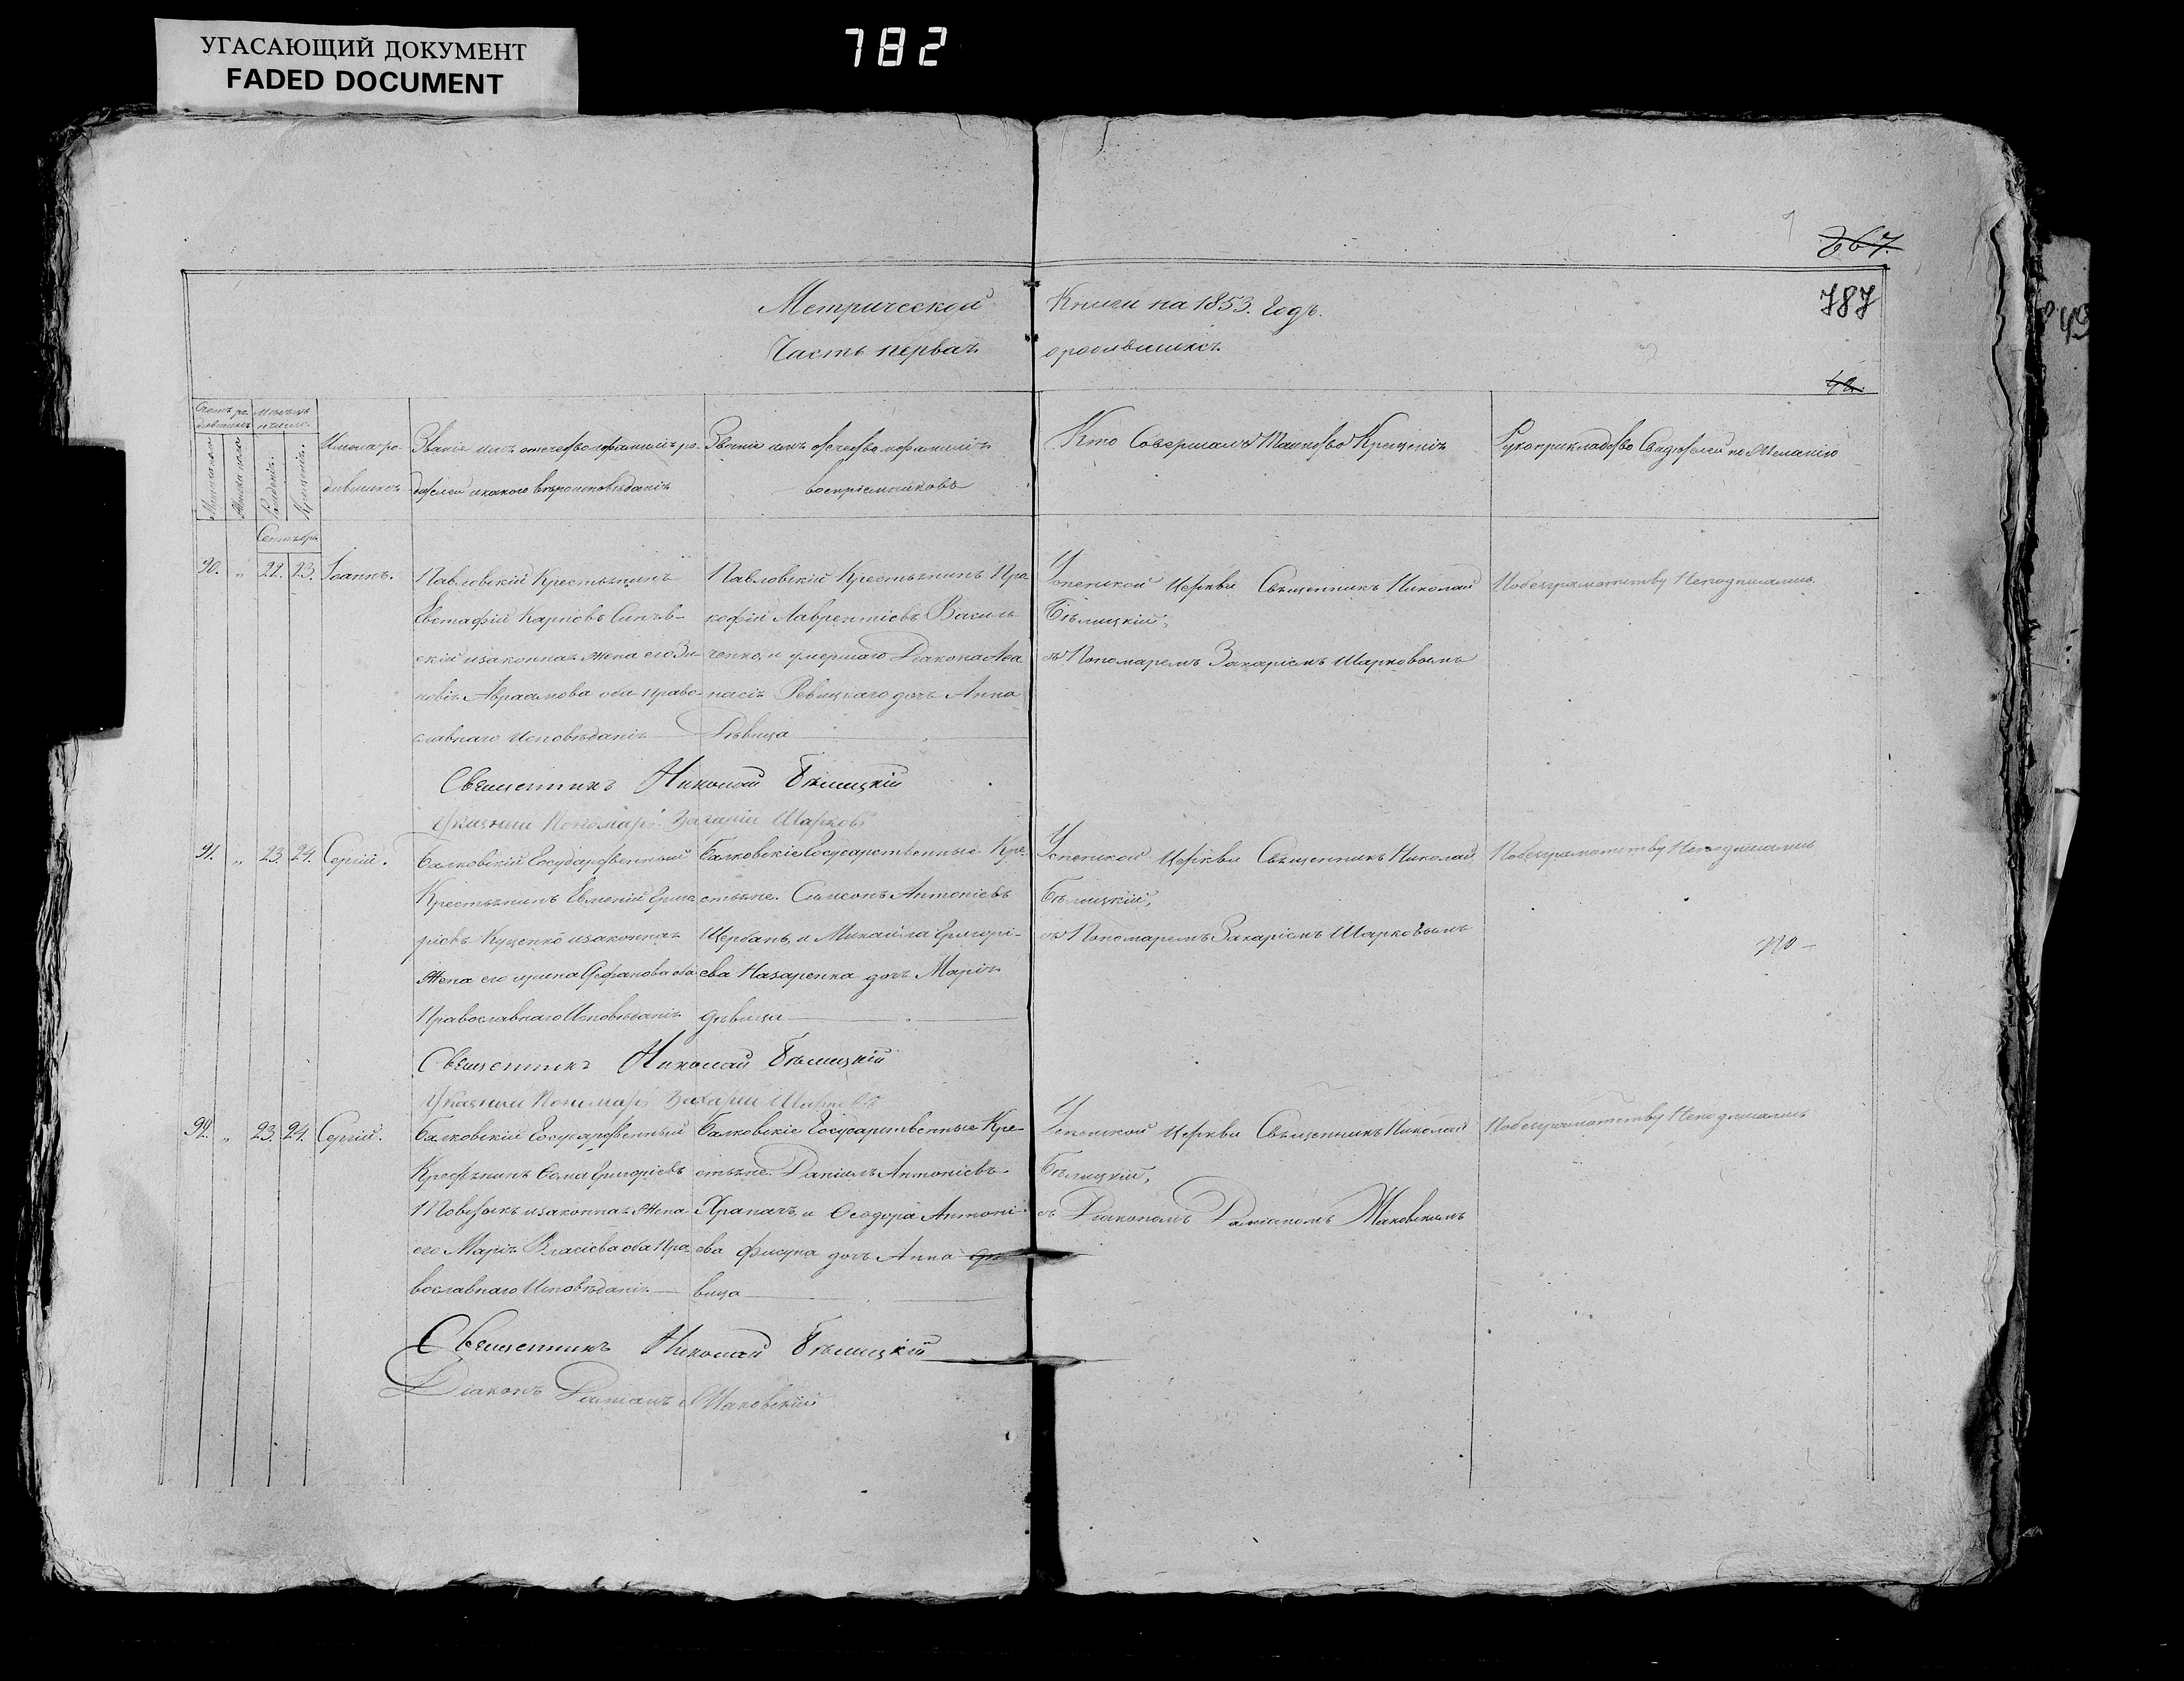 УГАСАЮЩИЙ ДОКУМЕНТ
FADED DOCUMENT
782
867.
787
42.
Метрической Книги на 1853. Годъ.
Часть первая о родившихся
Счетъ родившихся
Мѣсяцъ и число.
Мужеска пола
Женска пола
Рожденія.
Крещенія.
Имена родившихся
Званіе имя отечество и фамилія ро-
дителей и какого вѣроисповѣданія
Званіе имя отечество и фамилія
воспріемниковъ
Кто Совершалъ Таинство Крещенія
Рукоприкладство Свидѣтелей по Желанію
Сентябрь
90. „ 21. 23. Іоаннъ.
Павловскій Крестьянинъ
Евстафій Карповъ
скій и законная Жена его Зи-
новія Авраамова оба право
славнаго исповѣданія
Павловскій Крестьянинъ Про
кофій Лаврентіевъ Василь
ченко, и умершаго Діакона Афа
насія Ревицкаго дочь Анна
Дѣвица
Успенской Церкви Священникъ Николай
Бѣлицкій,
съ Пономаремъ Захаріемъ Шарковымъ
Побезграмотству Неподписались.
Священникъ Николай Бѣлицкій
Указный Пономарь Захарій Шарковъ
91. „ 23. 24. Сергій.
Балковскій Государственный
Крестьянинъ Евменій Григо
ріевъ Куценко и законная
Жена его ирина Стефанова оба
Православнаго Исповѣданія
Балковскіе Государственные Кре-
стьяне. Симеонъ Антоніевъ
Щербань, и Михаила Григорі-
ева Назаренка дочь Марія
дѣвица
Успенской Церкви Священникъ Николай
Бѣлицкій,
съ Пономаремъ Захаріемъ Шарковымъ
Побезграмотству Неподписались
Священникъ Николай Бѣлицкій
Указный Пономарь Захарій Шарковъ
92. „ 23. 24. Сергій.
Балковскій Государственный
Крестьянинъ Сома Григоріевъ
и законная Жена
его Марія Власіева оба Пра
вославнаго Исповѣданія
Балковскіе Государственные Кре-
стьяне. Даніилъ Антоніевъ
Храпачъ, и Ѳеодора Антоні-
ева Фисуна дочь Анна дѣ
вица
Успенской Церкви Священникъ Николай
Бѣлицкій,
съ Діакономъ Даміаномъ Маковскимъ
Побезграмотству Неподписались
Священникъ Николай Бѣлицкій
Діаконъ Даміанъ Маковскій